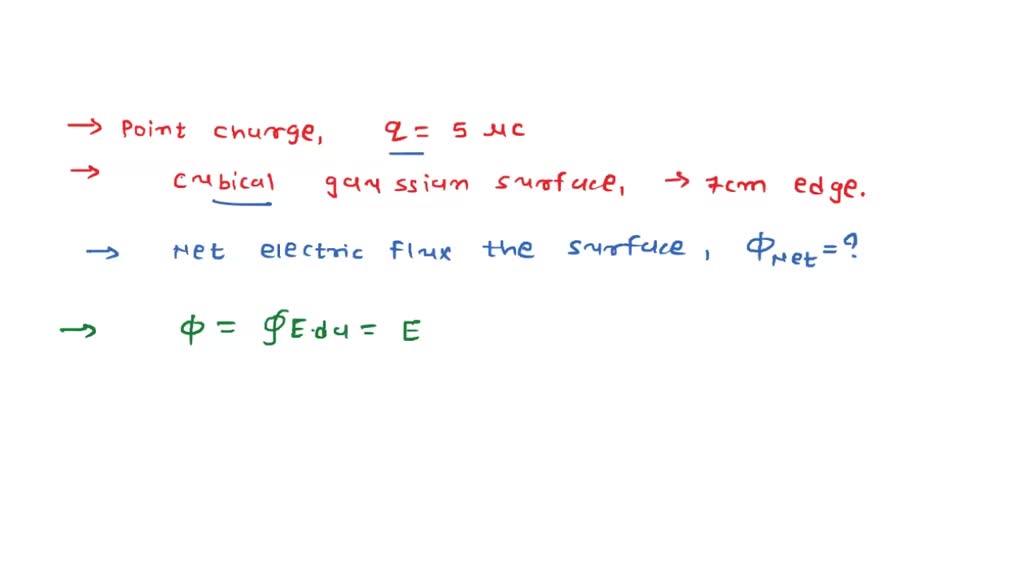 → Point charge, q = 5 μc
→ cubical gaussian surface, → 7cm edge.
→ Net electric flux the surface, Φ_Net = ?
→ Φ = ∮E·da = E